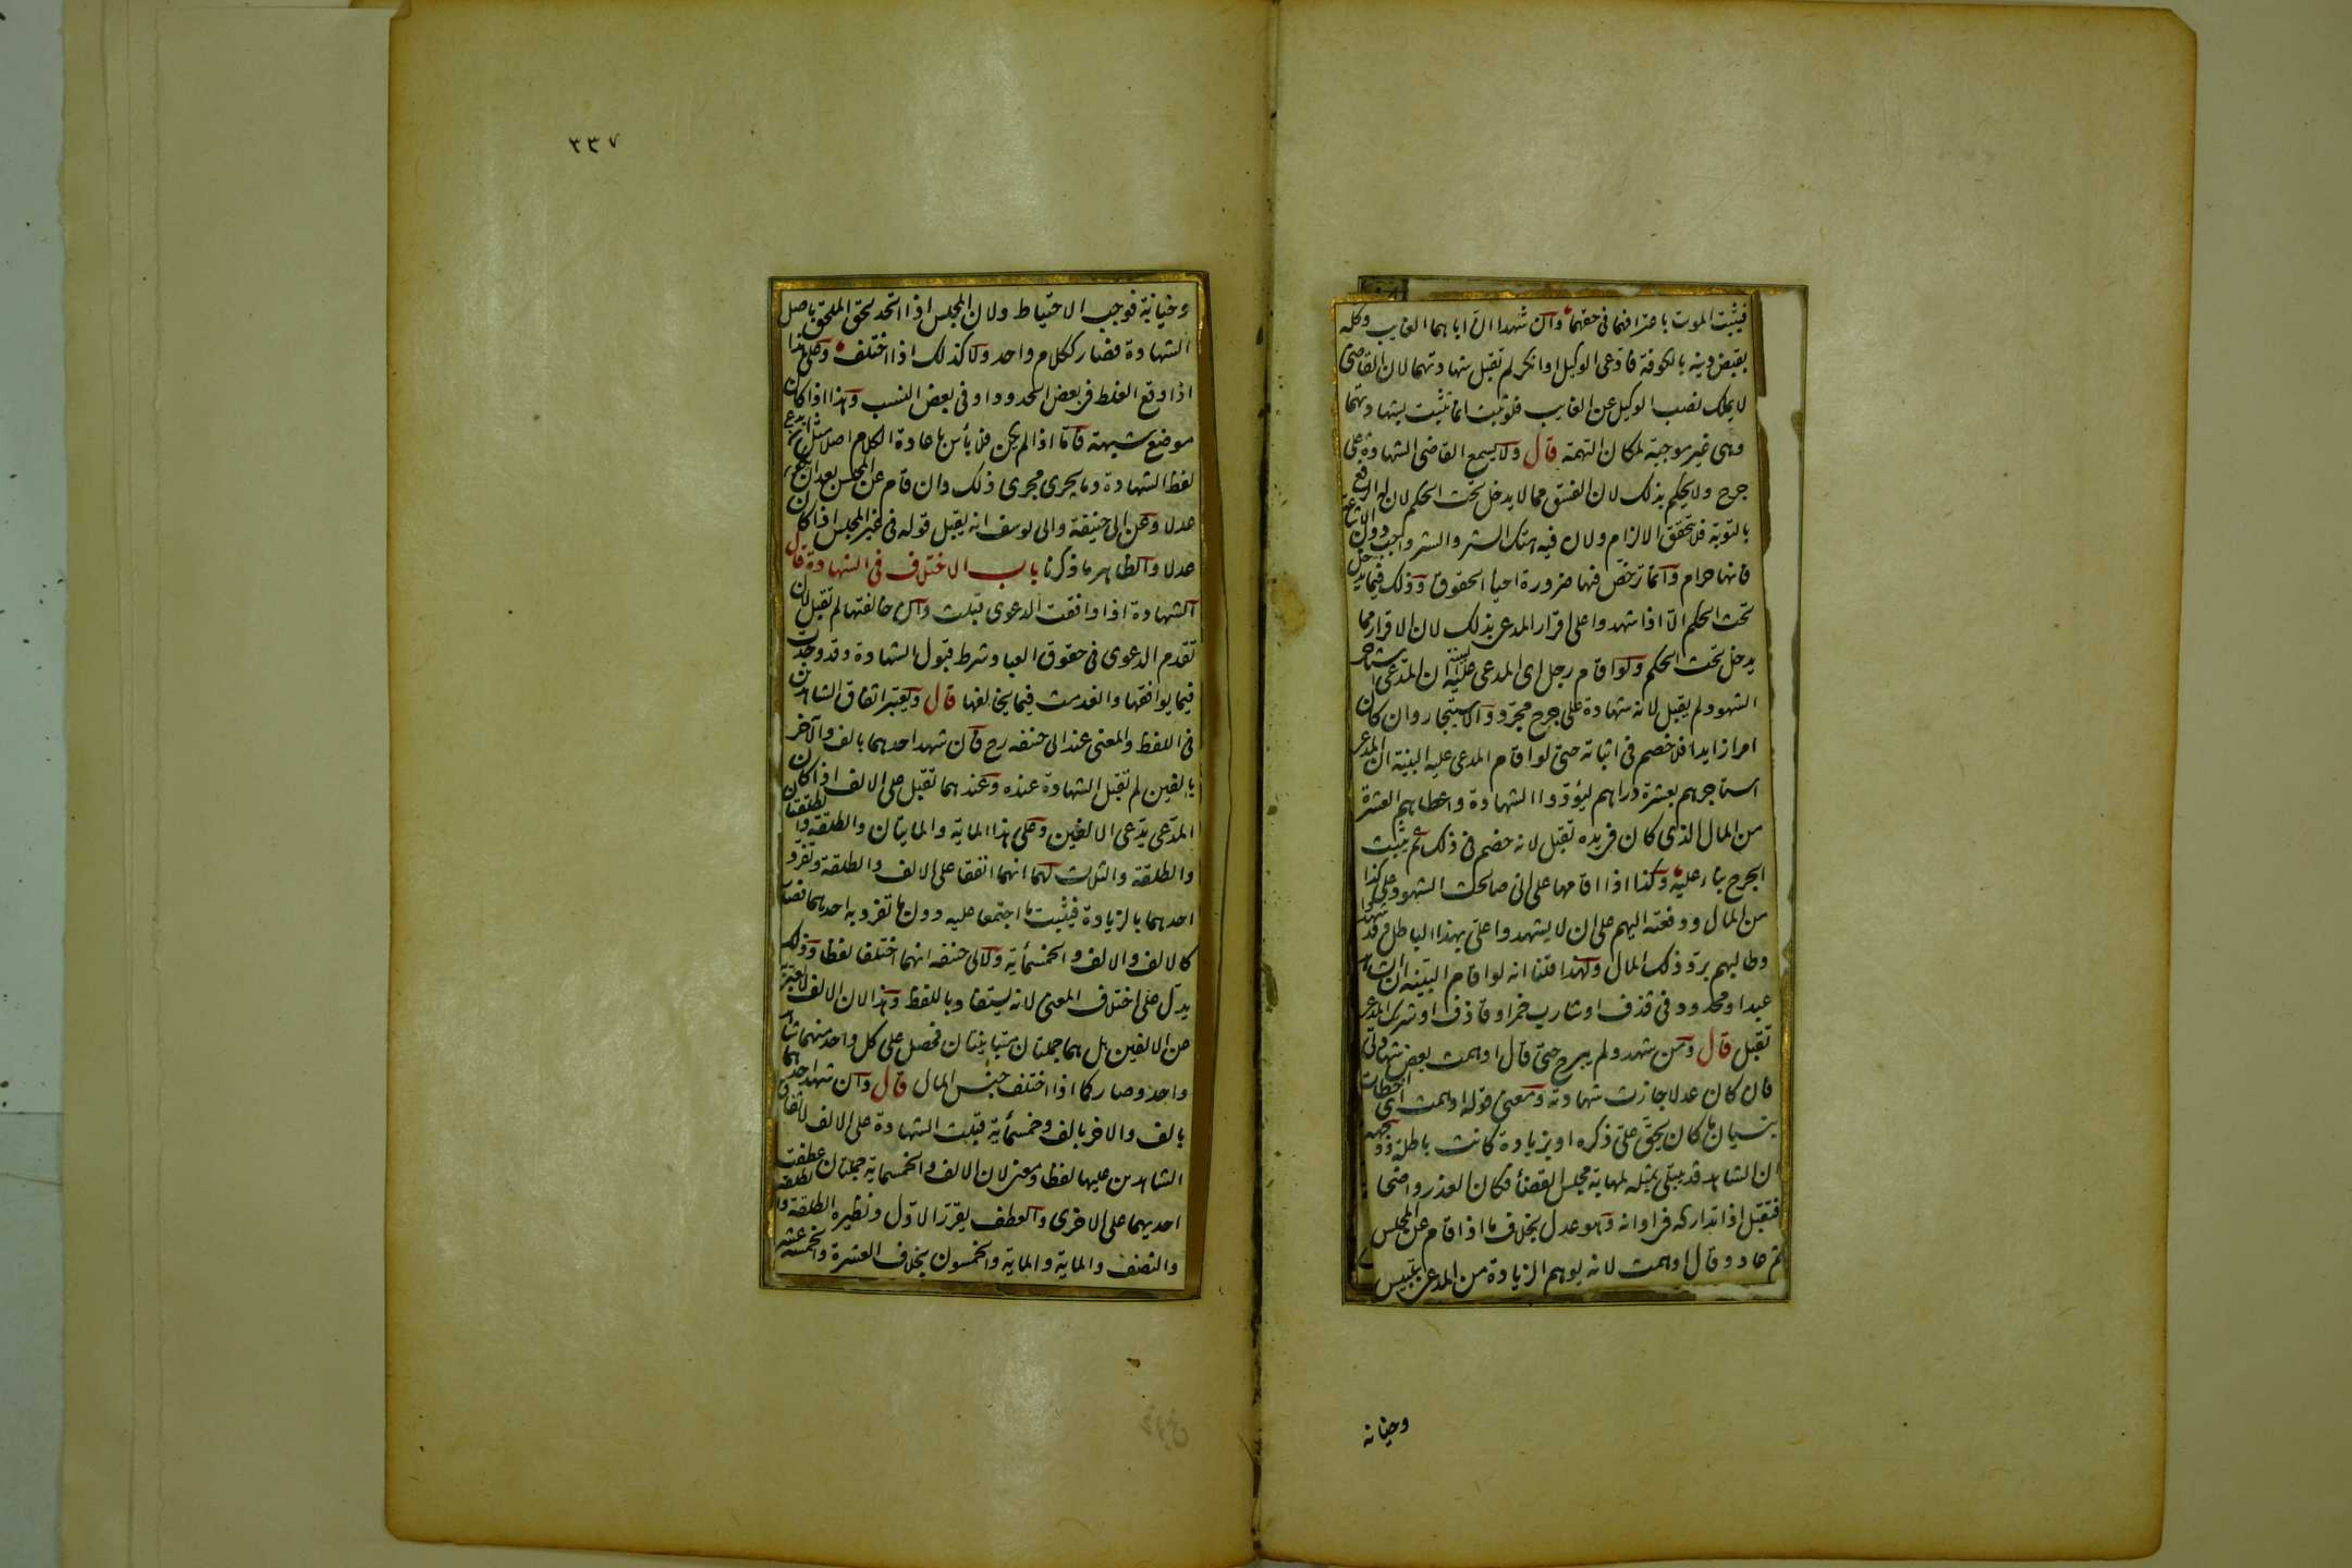 فيثبت الموت باعترافهما فى حقهما وان شهدا ان اباهما الغايب وكله
بقبض دينه بالكوفة فادعى الوكيل او انكر لم تقبل شهادتهما لان القاضى
لا يملك نصب الوكيل عن الغايب فلو ثبت انما تثبت بشهادتهما
وهى غير موجبة لمكان التهمة قال ولا يسمع القاضى الشهادة على
جرح ولا يحكم بذلك لان الفسق مما لا يدخل تحت الحكم لان له الدفع
بالتوبة فلا يتحقق الالزام ولان فيه هتك الستر والستر واجب والاشاعة
فانها حرام وانما ترخص فيها ضرورة احيا الحقوق وذلك فيما يدخل
تحت الحكم الا اذا شهدوا على اقرار المدعى بذلك لان الاقرار مما
يدخل تحت الحكم ولو اقام رجل اى المدعى عليه البينة ان المدعى استاجر
الشهود لم يقبل لانه شهادة على جرح مجرد والاستيجار وان كان
امرا زايدا فلا خصم فى اثباته حتى لو اقام المدعى عليه البينة ان المدعى
استاجرهم بعشرة دراهم ليؤدوا الشهادة واعطاهم العشرة
من المال الذى كان فى يده تقبل لانه خصم فى ذلك ثم يثبت
الجرح بناء عليه وكذا اذا اقامها على انى صالحت الشهود على كذا
من المال ودفعته اليهم على ان لا يشهدوا على بهذا الباطل وقد شهدوا
وطالبهم برد ذلك المال ولهذا قلنا انه لو اقام البينة ان الشاهد
عبد او محدود فى قذف او شارب خمر او قاذف او شريك المدعى
تقبل قال ومن شهد ولم يبرح حتى قال اوهمت بعض شهادتى
فان كان عدلا جازت شهادته ومعنى قوله اوهمت اى اخطات
بنسيان ما كان يحق على ذكره او بزيادة كانت باطلة ووجهه
ان الشاهد قد يبتلى بمثله لمهابة مجلس القضا فكان العذر واضحا
فتقبل اذا تداركه فى اوانه وهو عدل بخلاف ما اذا قام عن المجلس
ثم عاد وقال اوهمت لانه يوهم الزيادة من المدعى بتلبيس
وخيانة
٣٣٧
وخيانة فوجب الاحتياط ولان المجلس اذا اتحد لحق الملحق باصل
الشهادة فصار ككلام واحد ولا كذلك اذا اختلف وعلى هذا
اذا وقع الغلط فى بعض الحدود او فى بعض النسب وهذا اذا كان
موضع شبهة فاما اذا لم يكن فلا بأس باعادة الكلام اصلا مثل ان يدع
لفظ الشهادة وما يجرى مجرى ذلك وان قام عن المجلس بعد ان يكون
عدلا وعن ابى حنيفة وابى يوسف انه يقبل قوله فى غير المجلس اذا كان
عدلا والظاهر ما ذكرنا باب الاختلاف فى الشهادة قال
الشهادة اذا وافقت الدعوى قبلت وان خالفتها لم تقبل لان
تقدم الدعوى فى حقوق العباد شرط قبول الشهادة وقد وجدت
فيما يوافقها وانعدمت فيما يخالفها قال ويعتبر اتفاق الشاهدين
فى اللفظ والمعنى عند ابى حنفه رح فان شهد احدهما بالف والآخر
بالفين لم تقبل الشهادة عنده وعندهما تقبل على الالف اذا كان
المدعى يدعى الالفين وعلى هذا المايه والمايتان والطلقة والطلقتان
والطلقة والثلث لهما انهما اتفقا على الالف والطلقة وتفرد
احدهما بالزيادة فيثبت ما اجتمعا عليه دون ما تفرد به احدهما فصار
كالالف والالف والخمسمأية ولابى حنفه انهما اختلفا لفظا وذلك
يدل على اختلاف المعنى لانه يستفاد باللفظ وهذا لان الالف لا يعبر به
عن الالفين بل هما جملتان متباينتان فحصل على كل واحد منهما شاهد
واحد وصار كما اذا اختلف جنس المال قال وان شهد احدهما
بالف والاخر بالف وخمسمأية قبلت الشهادة على الالف لاتفاق
الشاهدين عليها لفظا ومعنى لان الالف والخمسماية جملتان عطفت
احديهما على الاخرى والعطف يقرر الاول ونظيره الطلقة والطلقة
والنصف والماية والماية والخمسون بخلاف العشرة والخمسة عشر